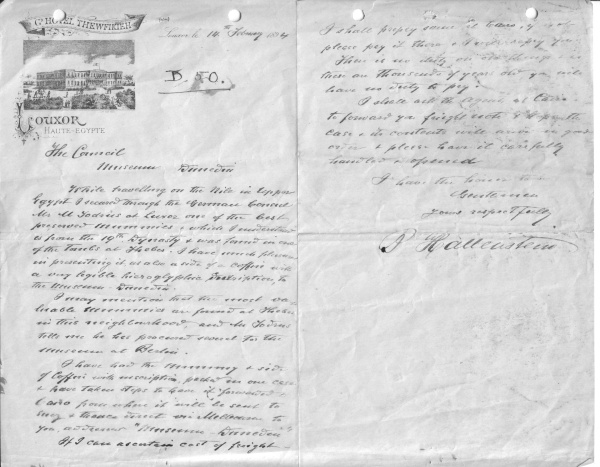 Gd HOTEL THEWFIKIEH
LOUXOR
HAUTE-EGYPTE
14th February 1894
The Council
Museum Dunedin
While travelling on the Nile in Upper
Egypt I secured through the German Consul
Mr M Todrus at Luxor one of the best
preserved mummies & which I understand
is from the 19th Dynasty & was found in one
of the tombs at Thebes. I have much pleasure
in presenting it as also a side of a coffin with
a very legible hieroglyphic inscription, to
the Museum Dunedin.
I may mention that the most
valuable mummies are found at Thebes
in this neighbourhood, and Mr Todrus
tells me he has procured several for the
Museum at Berlin.
I have had the mummy & side
of Coffin with inscription packed in one case
& have taken steps to have it forwarded to
Cairo from where it will be sent to
Suez & thence direct via Melbourne to
you, addressed "Museum Dunedin"
If I can ascertain cost of freight
I shall prepay same at Cairo, if not
please pay it there & I will repay you.
There is no duty on old things
thousands of years old you will
have no duty to pay.
I shall ask the Agent at Cairo
to forward you freight note & hope the
case & its contents will arrive in good
order & please have it carefully
handled & opened
I have the honor to be
Gentlemen
yours respectfully
B Hallenstein